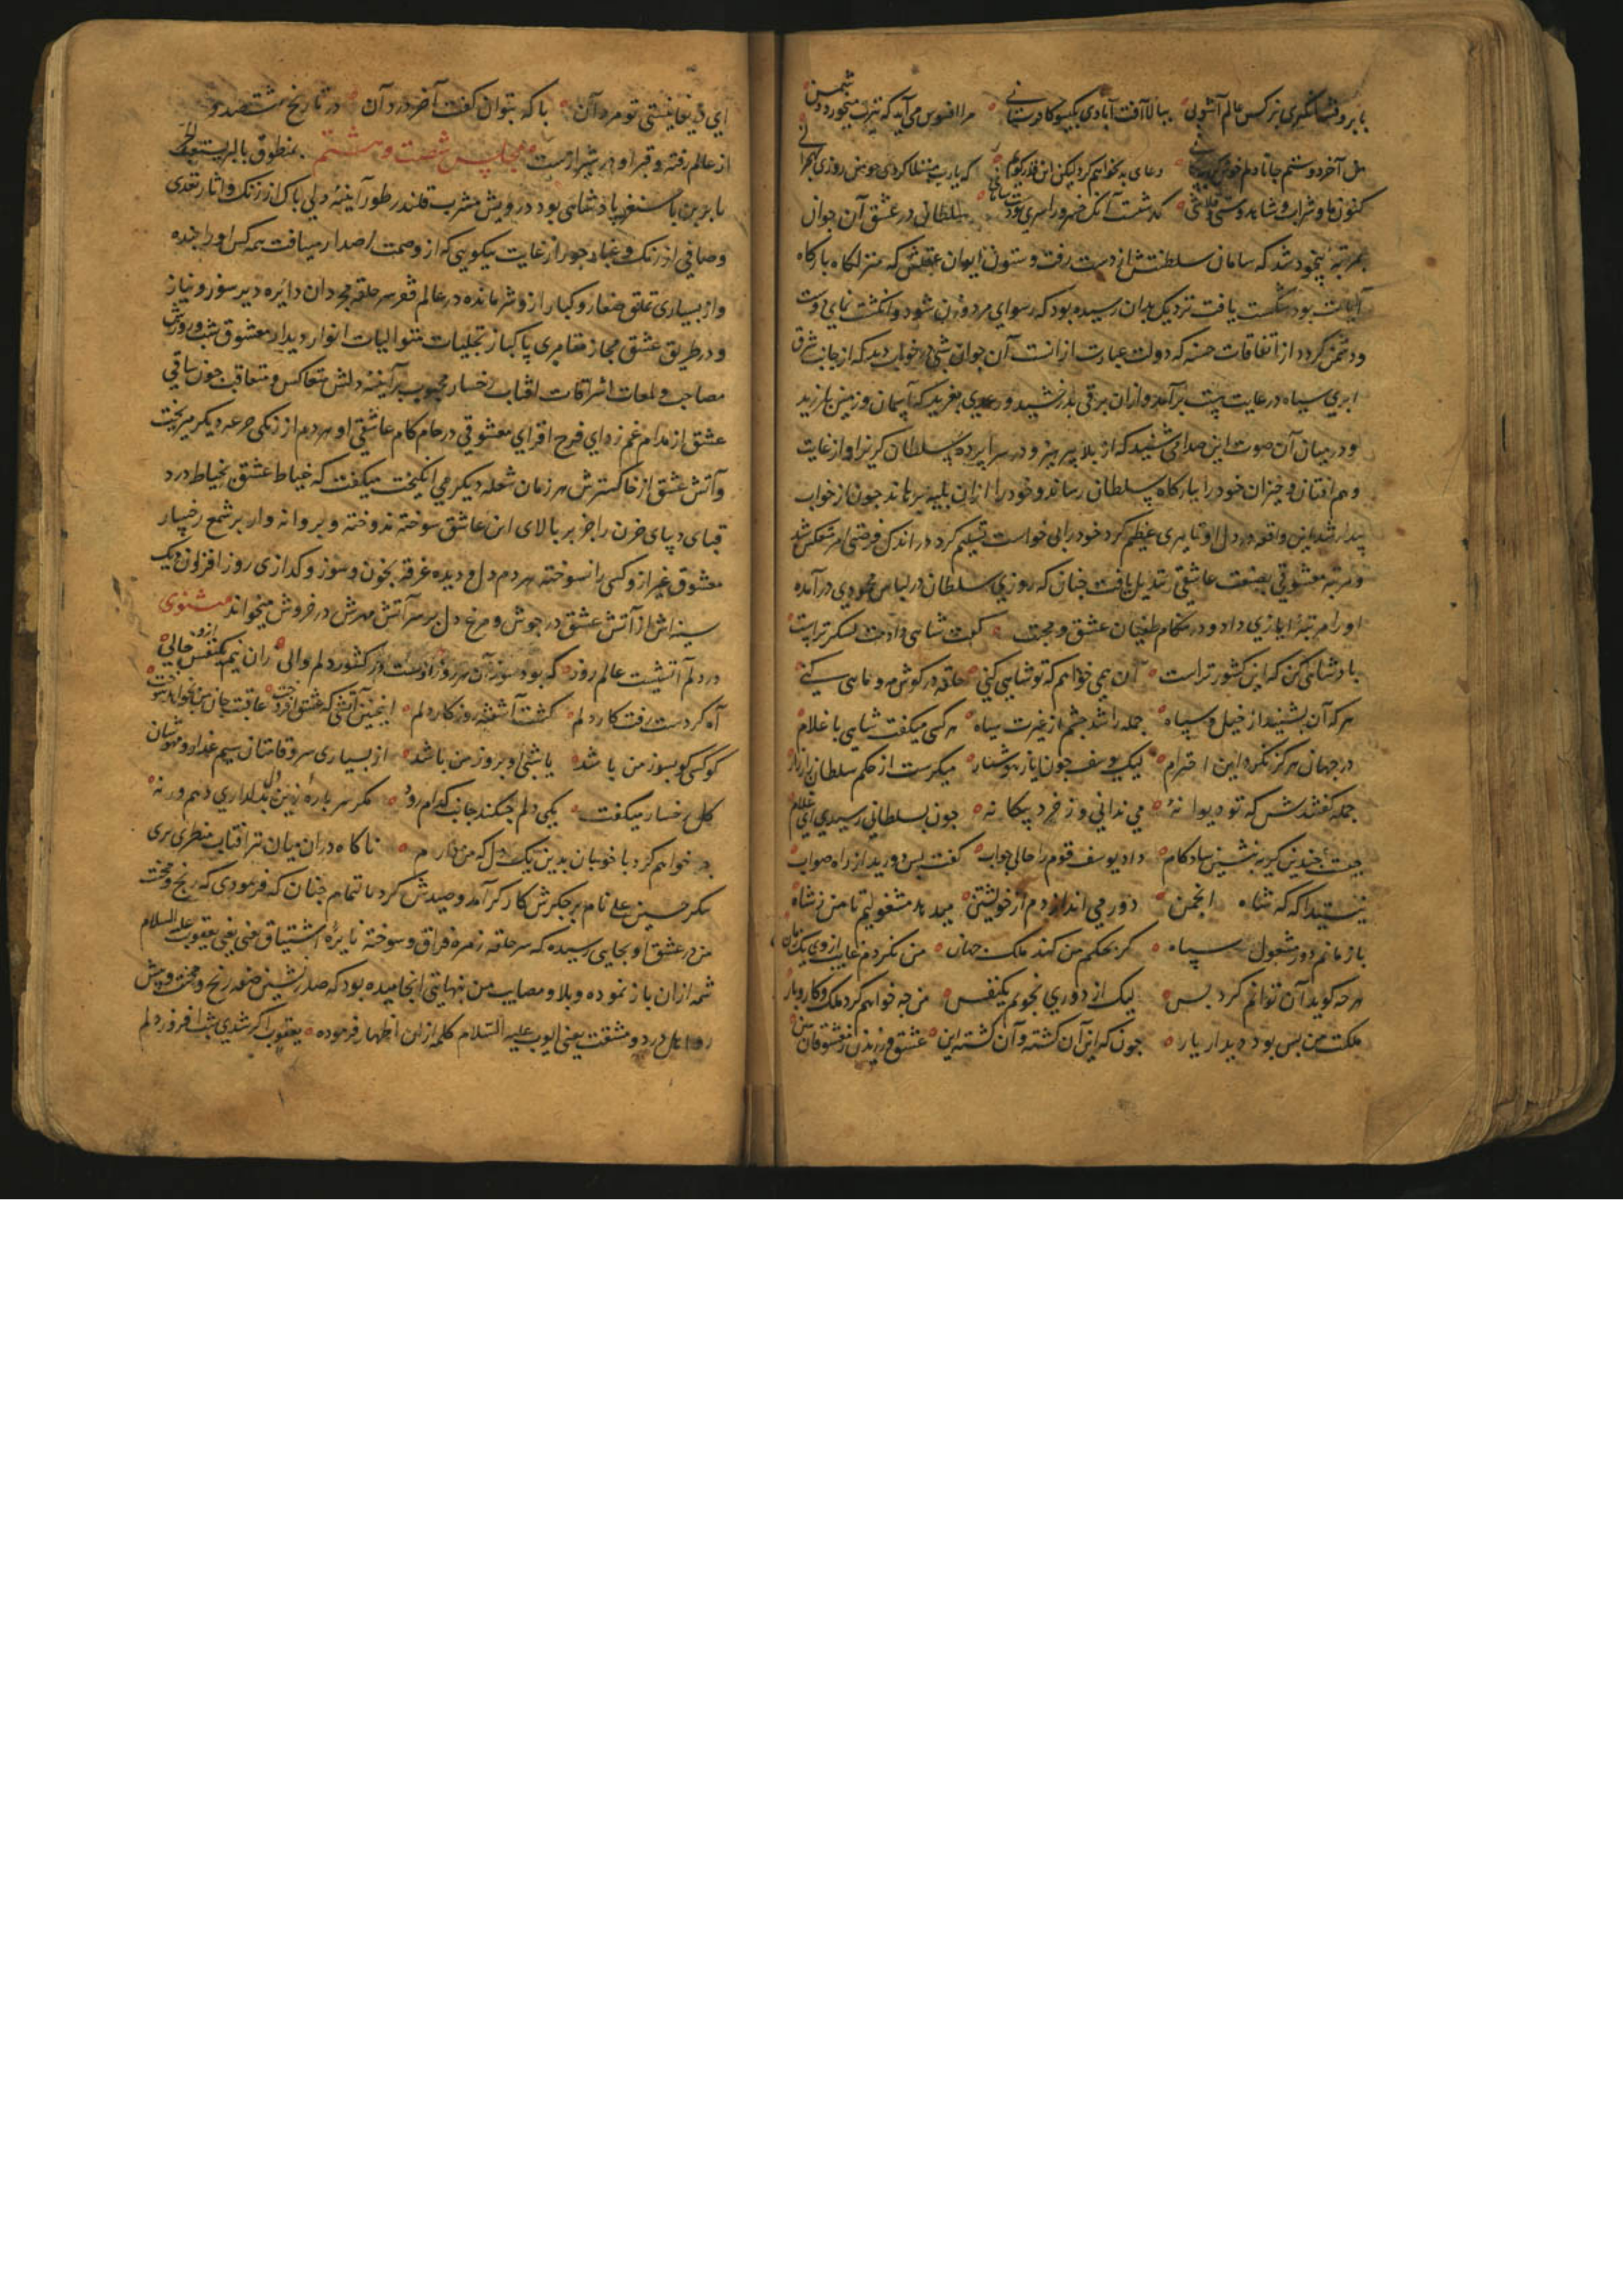 بابرو فتنه انگیزی بنرکس عالم آشوبی ببالا آفت آبادی بکیسو کافرستانی مرا افسوس می آید که تیرت میخورد دشمن
دعای بد نخواهم کرد لیکن این قدر کویم که یارب مبتلا کردی جو من روزی بهجرانی
کنون ما و شراب و شاهد و مستی و قلاشی کذشت آنک خسرو را سری بود سلطان در عشق آن جوان
بمرتبه بیخود شد که سامان سلطنتش از دست رفت و ستون ایوان عقلش که منزلکاه بارکاه
بود شکست یافت نزدیک بدان رسیده بود که رسوای مرد و زن شود و انکشت نمای دوست
و دشمن کردد از اتفاقات حسنه که دولت عبارت از آنست آن جوان شبی در خواب دید که از جانب شرق
ابری سیاه در غایت پست برآمد و ازان برقی بدرخشید و رعدی بغرید که آسمان و زمین بلرزید
و در میان آن صوت این صدا می شنید که از بلا بپرهیز و در سراپرده سلطان کریز او از غایت
وهم افتان و خیزان خود را ببارکاه سلطان رساند و خود را ازان بلیه برهاند جون از خواب
بیدار شد این واقعه در دل او تاثیری عظیم کرد خود را بی خواست تسلیم کرد در اندک فرصتی امر منعکس شد
و مرتبه معشوقی بصفت عاشقی تبدیل یافت جنان که روزی سلطان در لباس محمودی درآمده
او را مرتبه ایازی داد و در هنکام طغیان عشق و محبت کفت شاهی دادمت لشکر تراست
پادشاهی کن که این کشور تراست آن همی خواهم که تو شاهی کنی حلقه در کوش مه و ماهی کنی
هر که آن بشنید از خیل و سپاه جمله را شد جشم از غیرت سیاه هر کسی میکفت شاهی با غلام
در جهان هرکز نکرد این احترام لیک یوسف جون ایاز هوشیار میکریست از حکم سلطان زار زار
جمله کفتندش که تو دیوانه می ندانی وز خرد بیکانه جون بسلطانی رسیدی ای غلام
جیست جندین کریه بنشین شادکام داد یوسف قوم را حالی جواب کفت بس دورید از راه صواب
نیستید آکه که شاه انجمن دور می اندازدم از خویشتن میدهد مشغولیم تا من ز شاه
باز مانم دور مشغول سپاه کر بحکم من کند ملک جهان من نکردم غایب از وی یک زمان
هرجه کوید آن توانم کرد بس لیک از دوری نجویم یکنفس من جه خواهم کرد ملک و کار و بار
ملکت من بس بود دیدار یار جون که این آن کشته و آن کشته این عشق ورزیدن ز معشوقان
ای تو مرد آن با که بتوان کفت آخر درد آن در تاریخ هشتصد و
از عالم رفته و قبر او در شیرازست مجلس شصت و هشتم بمنطوق
بابر بن بایسنغر پادشاهی بود درویش مشرب قلندر طور آیینه دلی پاک از زنک و آثار تعدی
وصافی از زنک و غبار جور از غایت نیکویی که از و صمت اصدار می یافت همه کس او را بنده
و از بسیاری تملق صغار و کبار ازو شرمانده در عالم فقر سر حلقه مجردان دایره دیر سوز و نیاز
و در طریق عشق مجاز مقامری پاکباز تجلیات متوالیات انوار دیدار معشوق شب و روزش
مصاحب و لمعات اشراقات آفتاب رخسار محبوب بر آیینه دلش متعاکس و متعاقب جون ساقی
عشق از مدام غم زدای فرح افزای معشوقی در جام کام عاشقی او هر دم از رنکی جرعه دیکر میریخت
و آتش عشق از خاکسترش هر زمان شعله دیکر می انکیخت میکفت که خیاط عشق بخیاط درد
قبای دیبای حزن را جز بر بالای این عاشق سوخته ندوخته و پروانه وار بر شمع رخسار
معشوق غیر از و کسی را نسوخته هر دم دل و دیده غرقه بخون و سوز و کدازی روز افزون دیک
سینه اش از آتش عشق در جوش و مرغ دل بر سر آتش مهرش در خروش میخواند مثنوی
در دلم آتشیست عالم روز که بود سوز آن هر روز اوست در کشور دلم والی زان نیم یکنفس ازو خالی
آه کز دست رفت کار دلم کشت آشفته روزکار دلم اینچنین آتشی که عشق افروخت عاقبت جان من بخواهد سوخت
کو کسی کو بسوز من باشد یا شبی او بروز من باشد از بسیاری سرو قامتان سیم عذار و مهوشان
کل رخسار میکفت یکی دلم جکند جانب کدام رود مکر هر پاره زین دل بدلداری دهم ورنه
جه خواهم کرد با خوبان بدین یک دل که من دارم ناکاه دران میان تیر آفتاب منظری پری
پیکر حسین علی نام بر جکرش کارکر آمد و صیدش کرد تمام جنان که فرمودی که رنج و محنت
من در عشق او بجایی رسیده که سر حلقه زمره فراق و سوخته نایره اشتیاق یعنی یعقوب علیه السلام
شمه ازان باز نموده و بلا و مصایب من بنهایتی انجامیده بود که صدر نشین صفه رنج و محنت و پیش
رو اهل درد و مشقت یعنی ایوب علیه السلام کلمه ازان اظهار فرموده یعقوب اکر شدی شب افروز دلم